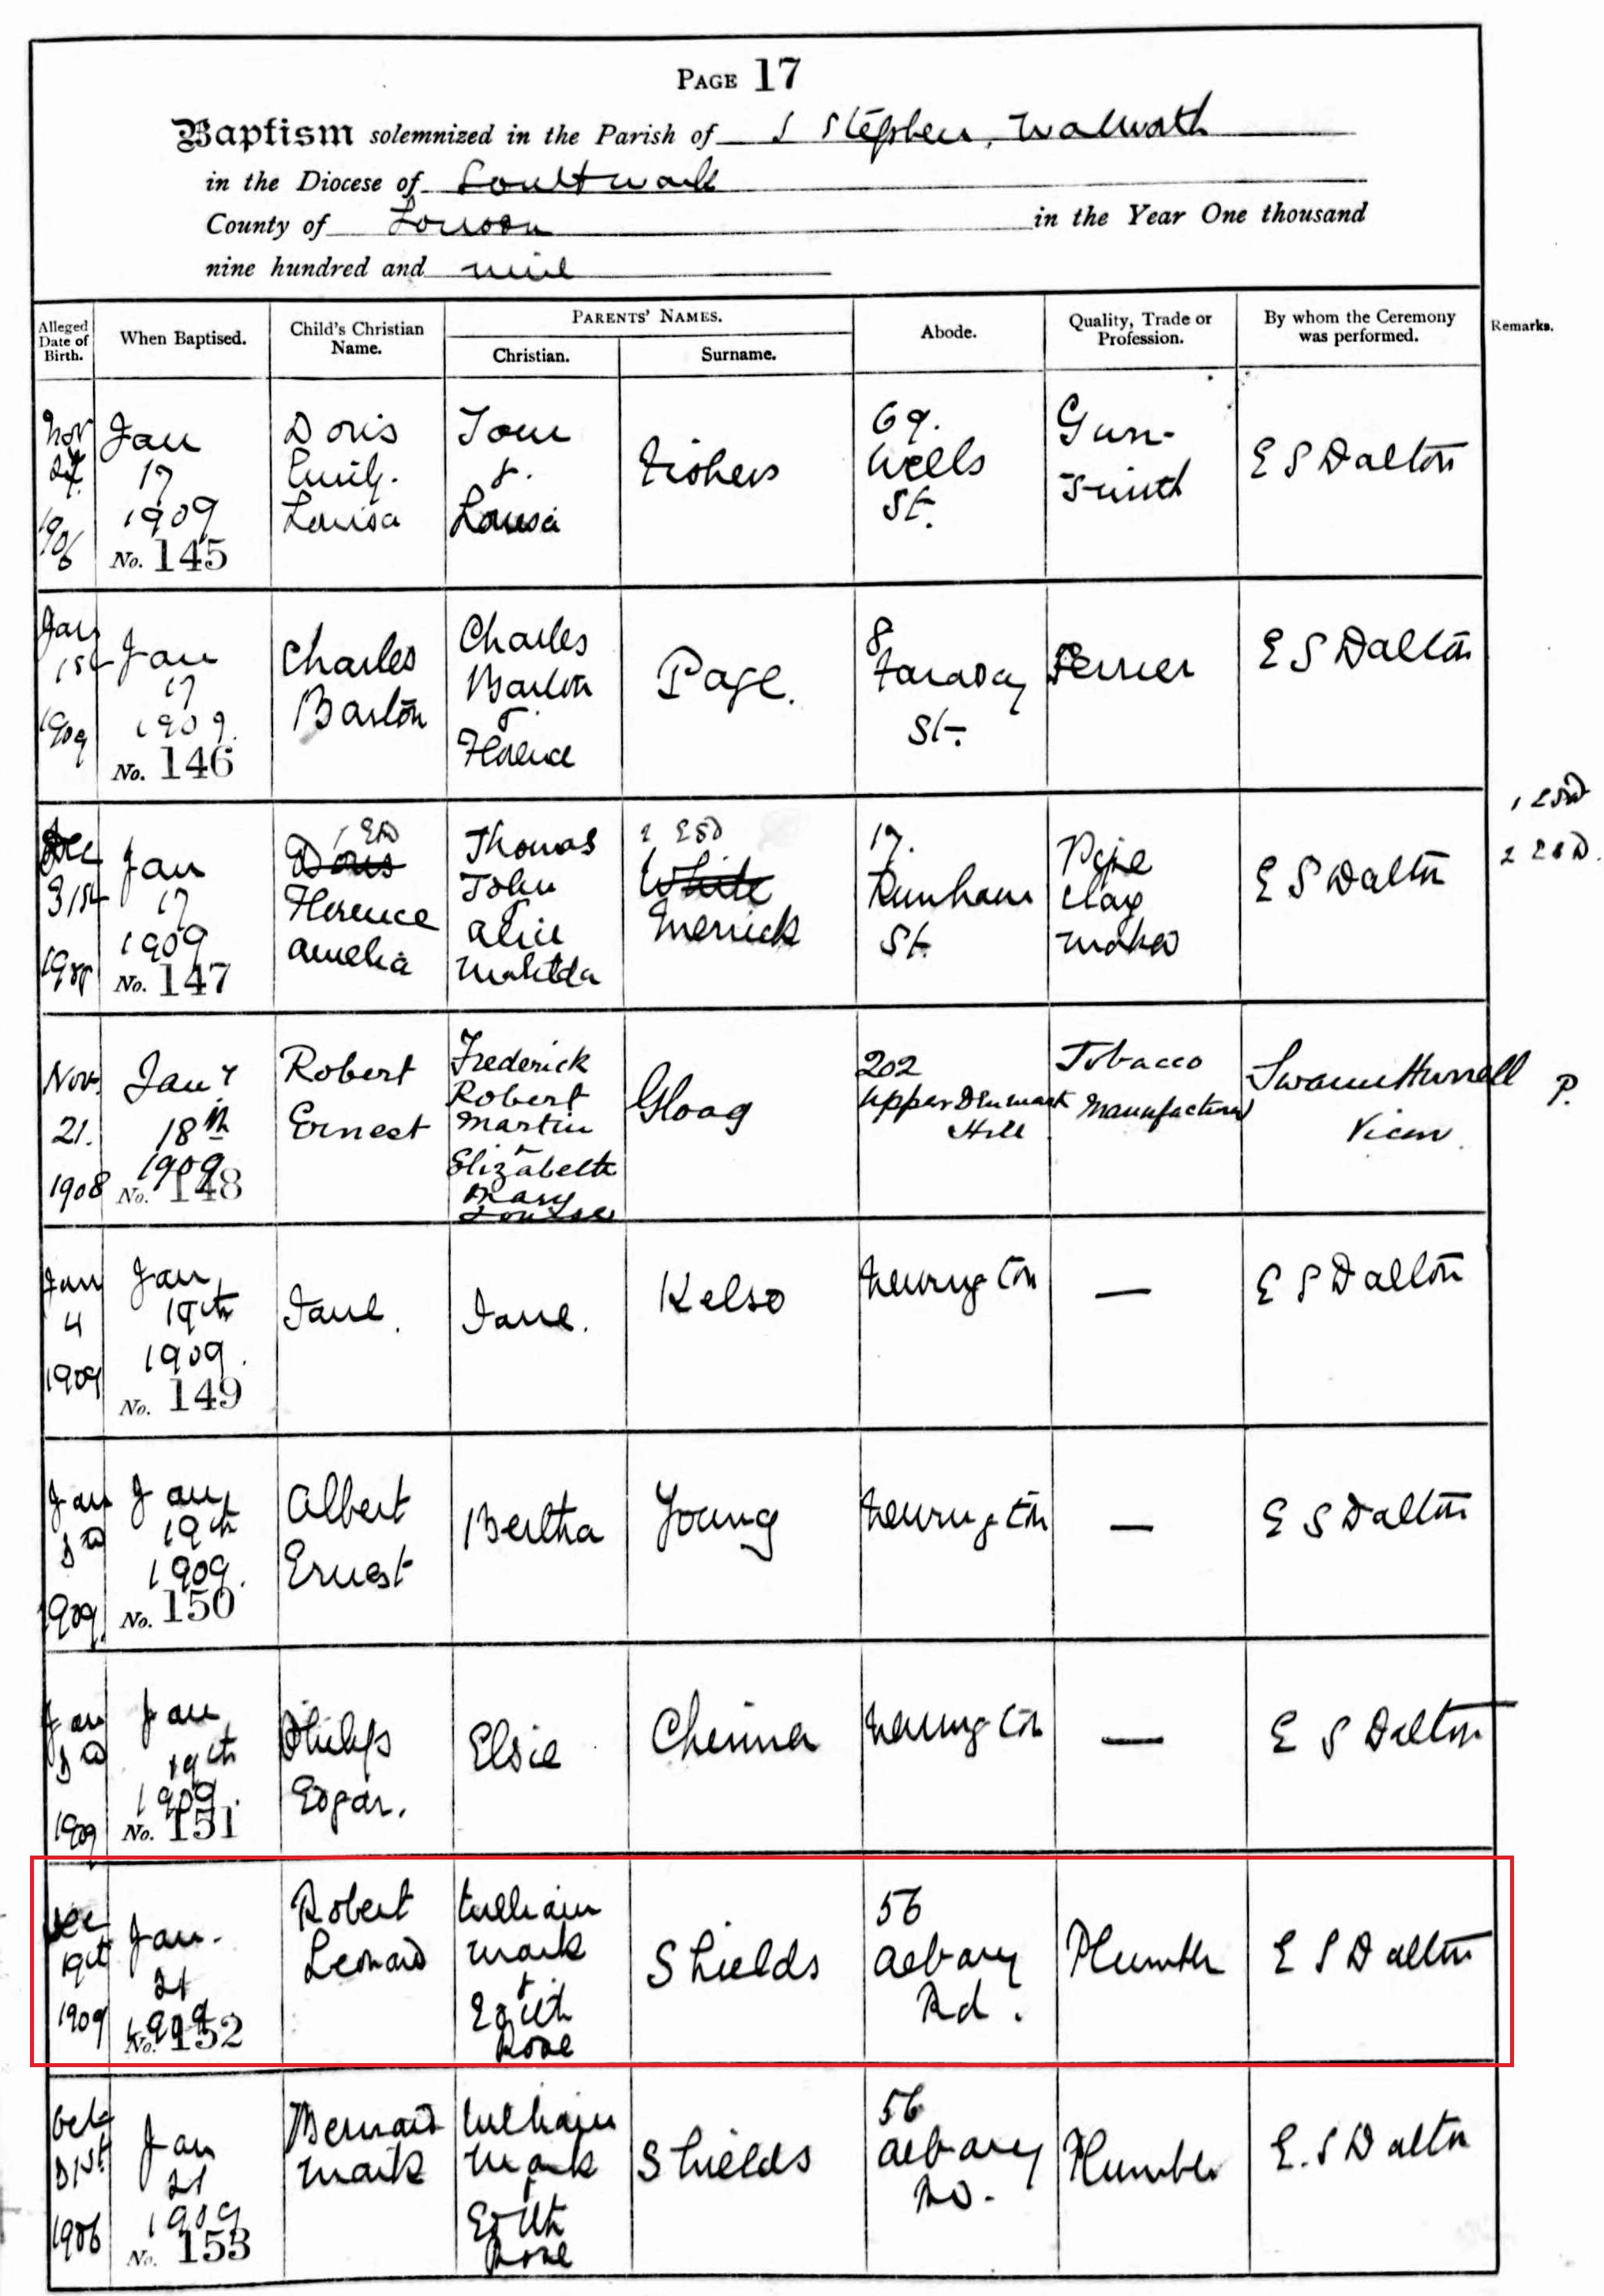 PAGE 17
Baptism solemnized in the Parish of S Stephen, Walworth
in the Diocese of Southwark
County of London in the Year One thousand
nine hundred and nine
Alleged Date of Birth.
When Baptised.
Child's Christian Name.
PARENTS' NAMES.
Christian.
Surname.
Abode.
Quality, Trade or Profession.
By whom the Ceremony was performed.
Remarks.
Nov
Jan
17
1909
No. 145
Doris
Emily.
Louisa
Tom
&.
Louisa
69.
Wells
St.
Gun-
Smith
E S Dalton
Jan
1st
1909
Jan
17
1909.
No. 146
Charles
Barton
Charles
Barton
&
Florence
Page.
8
Faraday
St.
E S Dalton
Dec
31st
1908
Jan
17
1909
No. 147
1 ESD
Doris
Florence
Amelia
Thomas
John
&
Alice
Matilda
2 ESD
White
Merrick
17.
St.
Pipe
Clay
Maker
E S Dalton
1 ESD
2 ESD.
Nov.
21.
1908
Jany
18th
1909
No. 148
Robert
Ernest
Frederick
Robert
Martin
&
Elizabeth
Mary
Louise
Gloag
202
Upper Denmark
Hill
Tobacco
Manufacturer
Swann Hurrell
Vicar.
P.
Jan
4
1909
Jan
19th
1909.
No. 149
Jane.
Jane.
Kelso
Newington
—
E S Dalton
Jan
3rd
1909.
Jan
19th
1909.
No. 150
Albert
Ernest
Bertha
Young
Newington
—
E S Dalton
Jan
3rd
1909
Jan
19th
1909.
No. 151
Philip
Edgar.
Elsie
Newington
—
E S Dalton
Dec
19th
1909
Jan.
21
1909
No. 152
Robert
Leonard
William
Mark
&
Edith
Rose
Shields
56
Aebary
Rd.
Plumber
E S Dalton
Oct
31st
1906
Jan
21
1909
No. 153
Bernard
Mark
William
Mark
&
Edith
Rose
Shields
56
Aebary
Rd.
Plumber
E. S Dalton